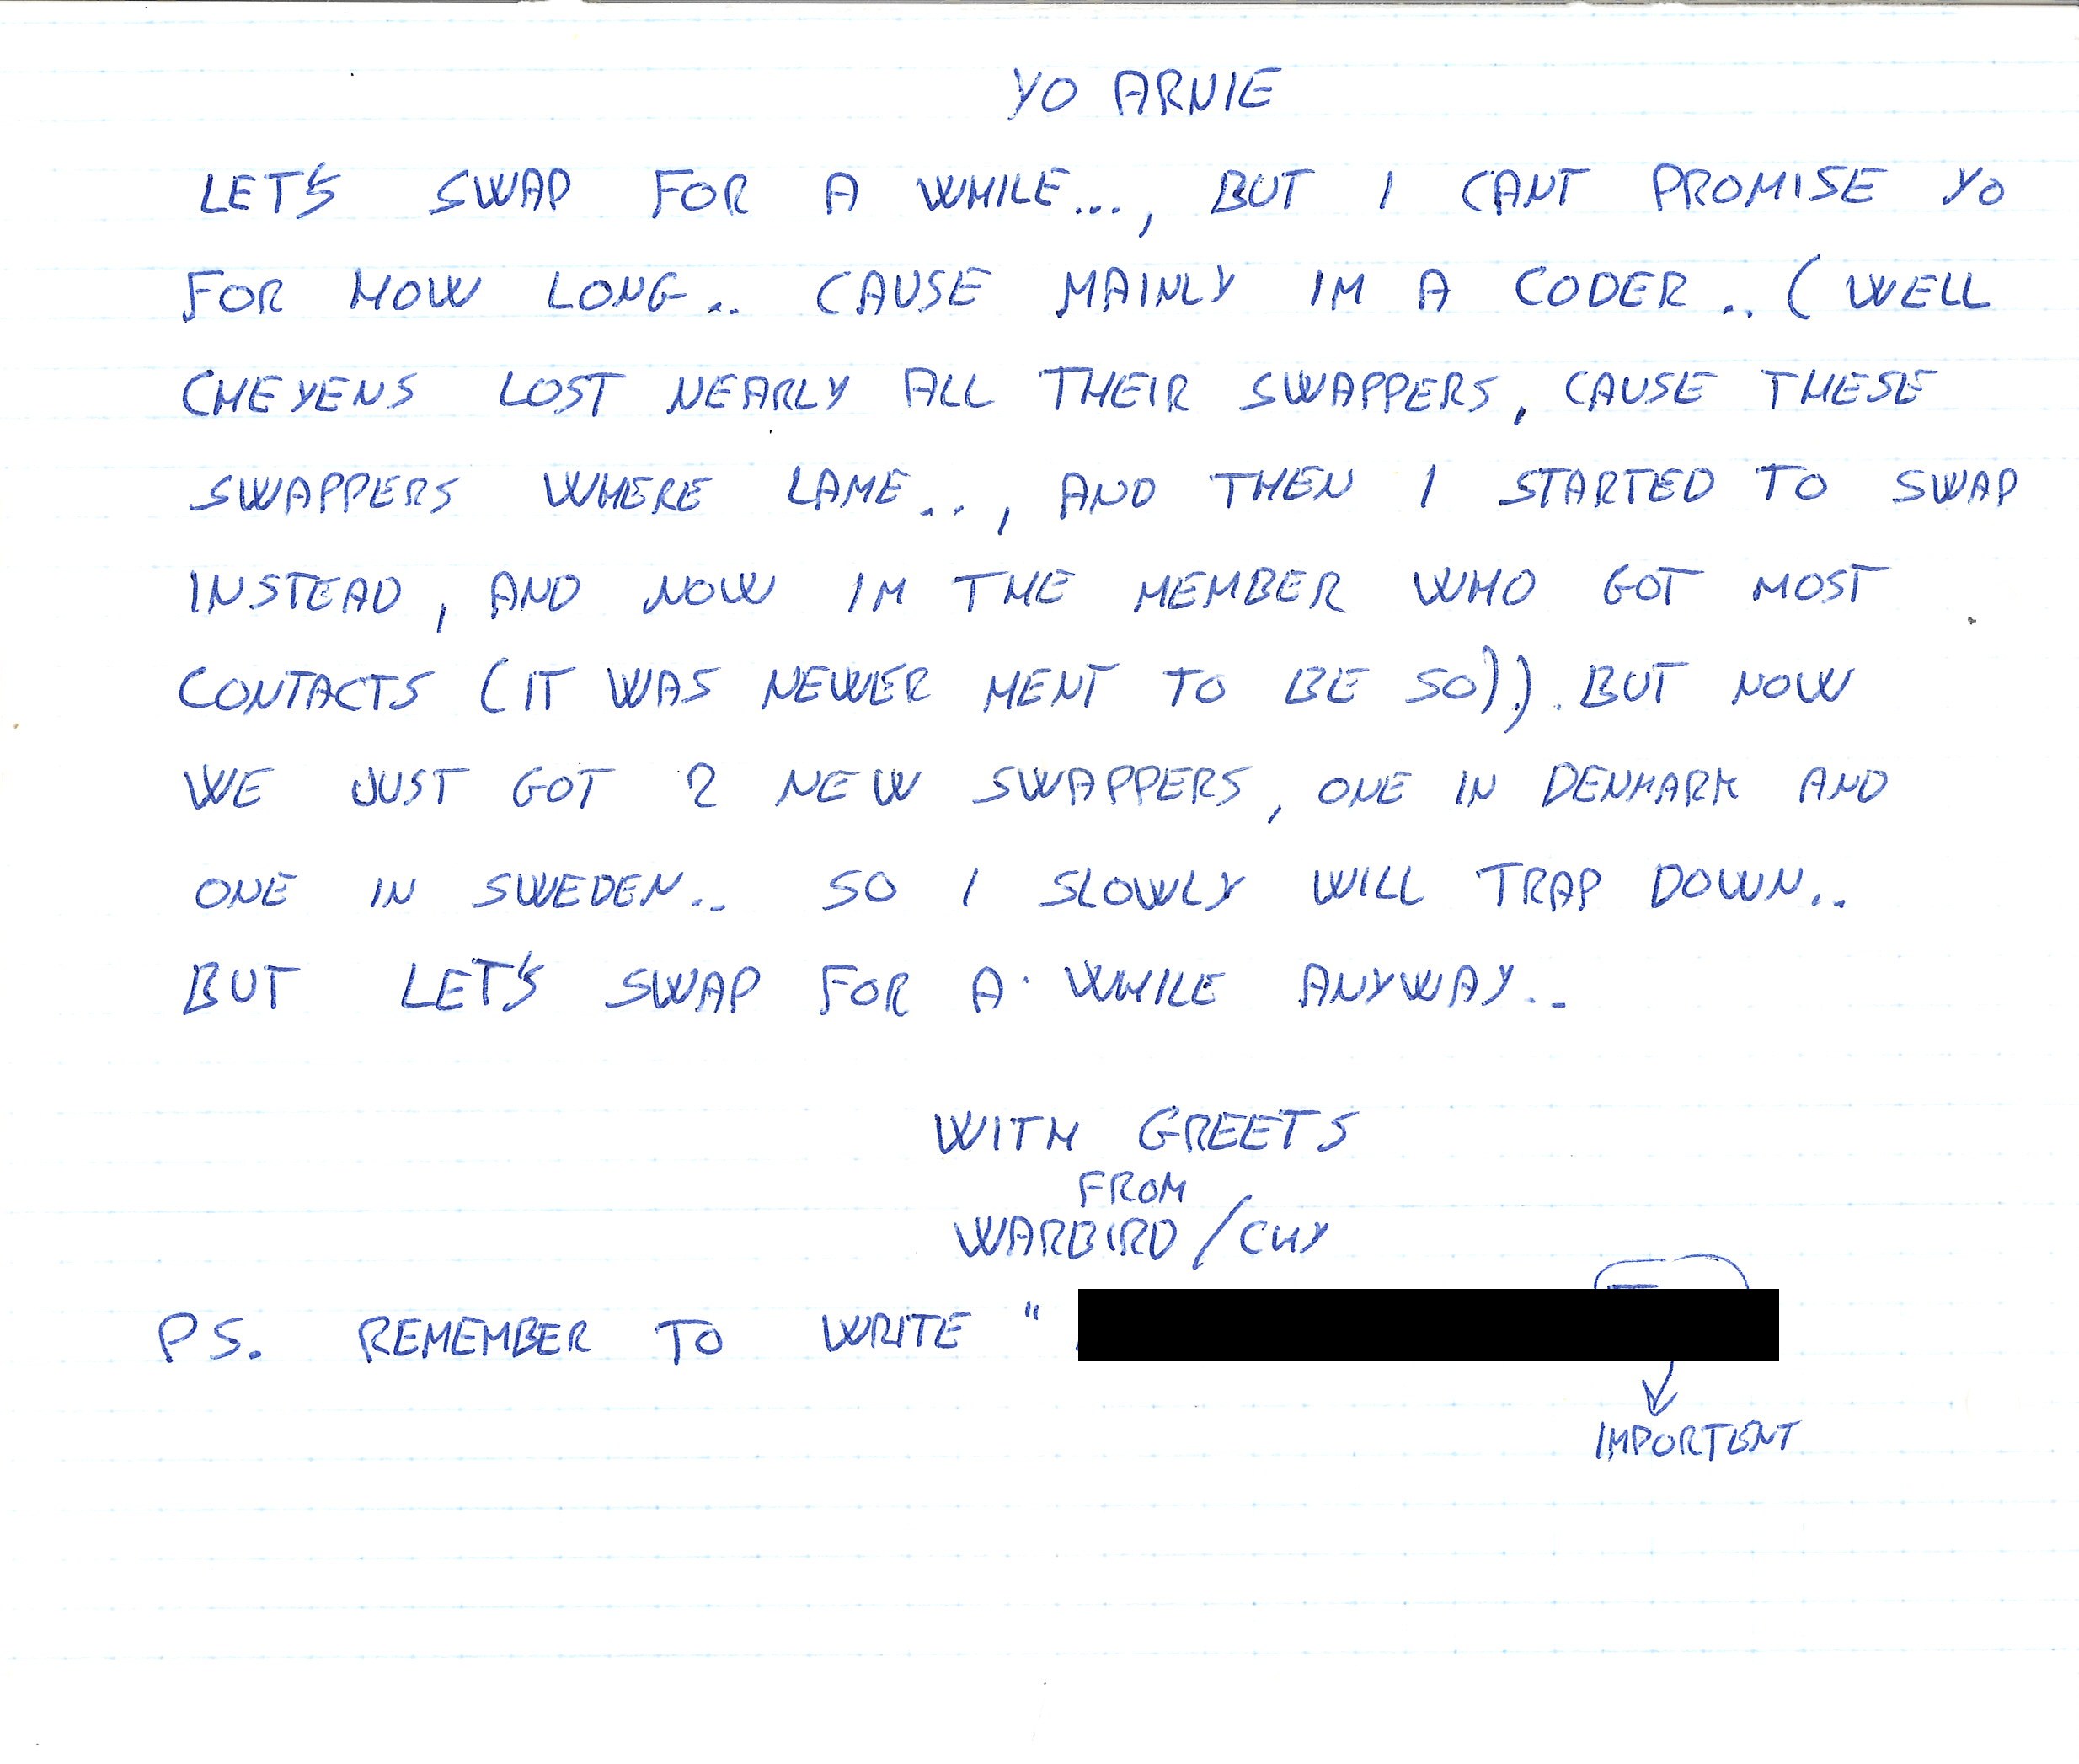 YO ARNIE
LET'S SWAP FOR A WHILE..., BUT I CANT PROMISE YO
FOR HOW LONG.. CAUSE MAINLY IM A CODER.. (WELL
CHEYENS LOST NEARLY ALL THEIR SWAPPERS, CAUSE THESE
SWAPPERS WHERE LAME.., AND THEN I STARTED TO SWAP
INSTEAD, AND NOW IM THE MEMBER WHO GOT MOST
CONTACTS (IT WAS NEWER MENT TO BE SO)). BUT NOW
WE JUST GOT 2 NEW SWAPPERS, ONE IN DENMARK AND
ONE IN SWEDEN.. SO I SLOWLY WILL TRAP DOWN..
BUT LET'S SWAP FOR A WHILE ANYWAY..
WITH GREETS
FROM
WARBIRD/CHY
PS. REMEMBER TO WRITE "
IMPORTENT